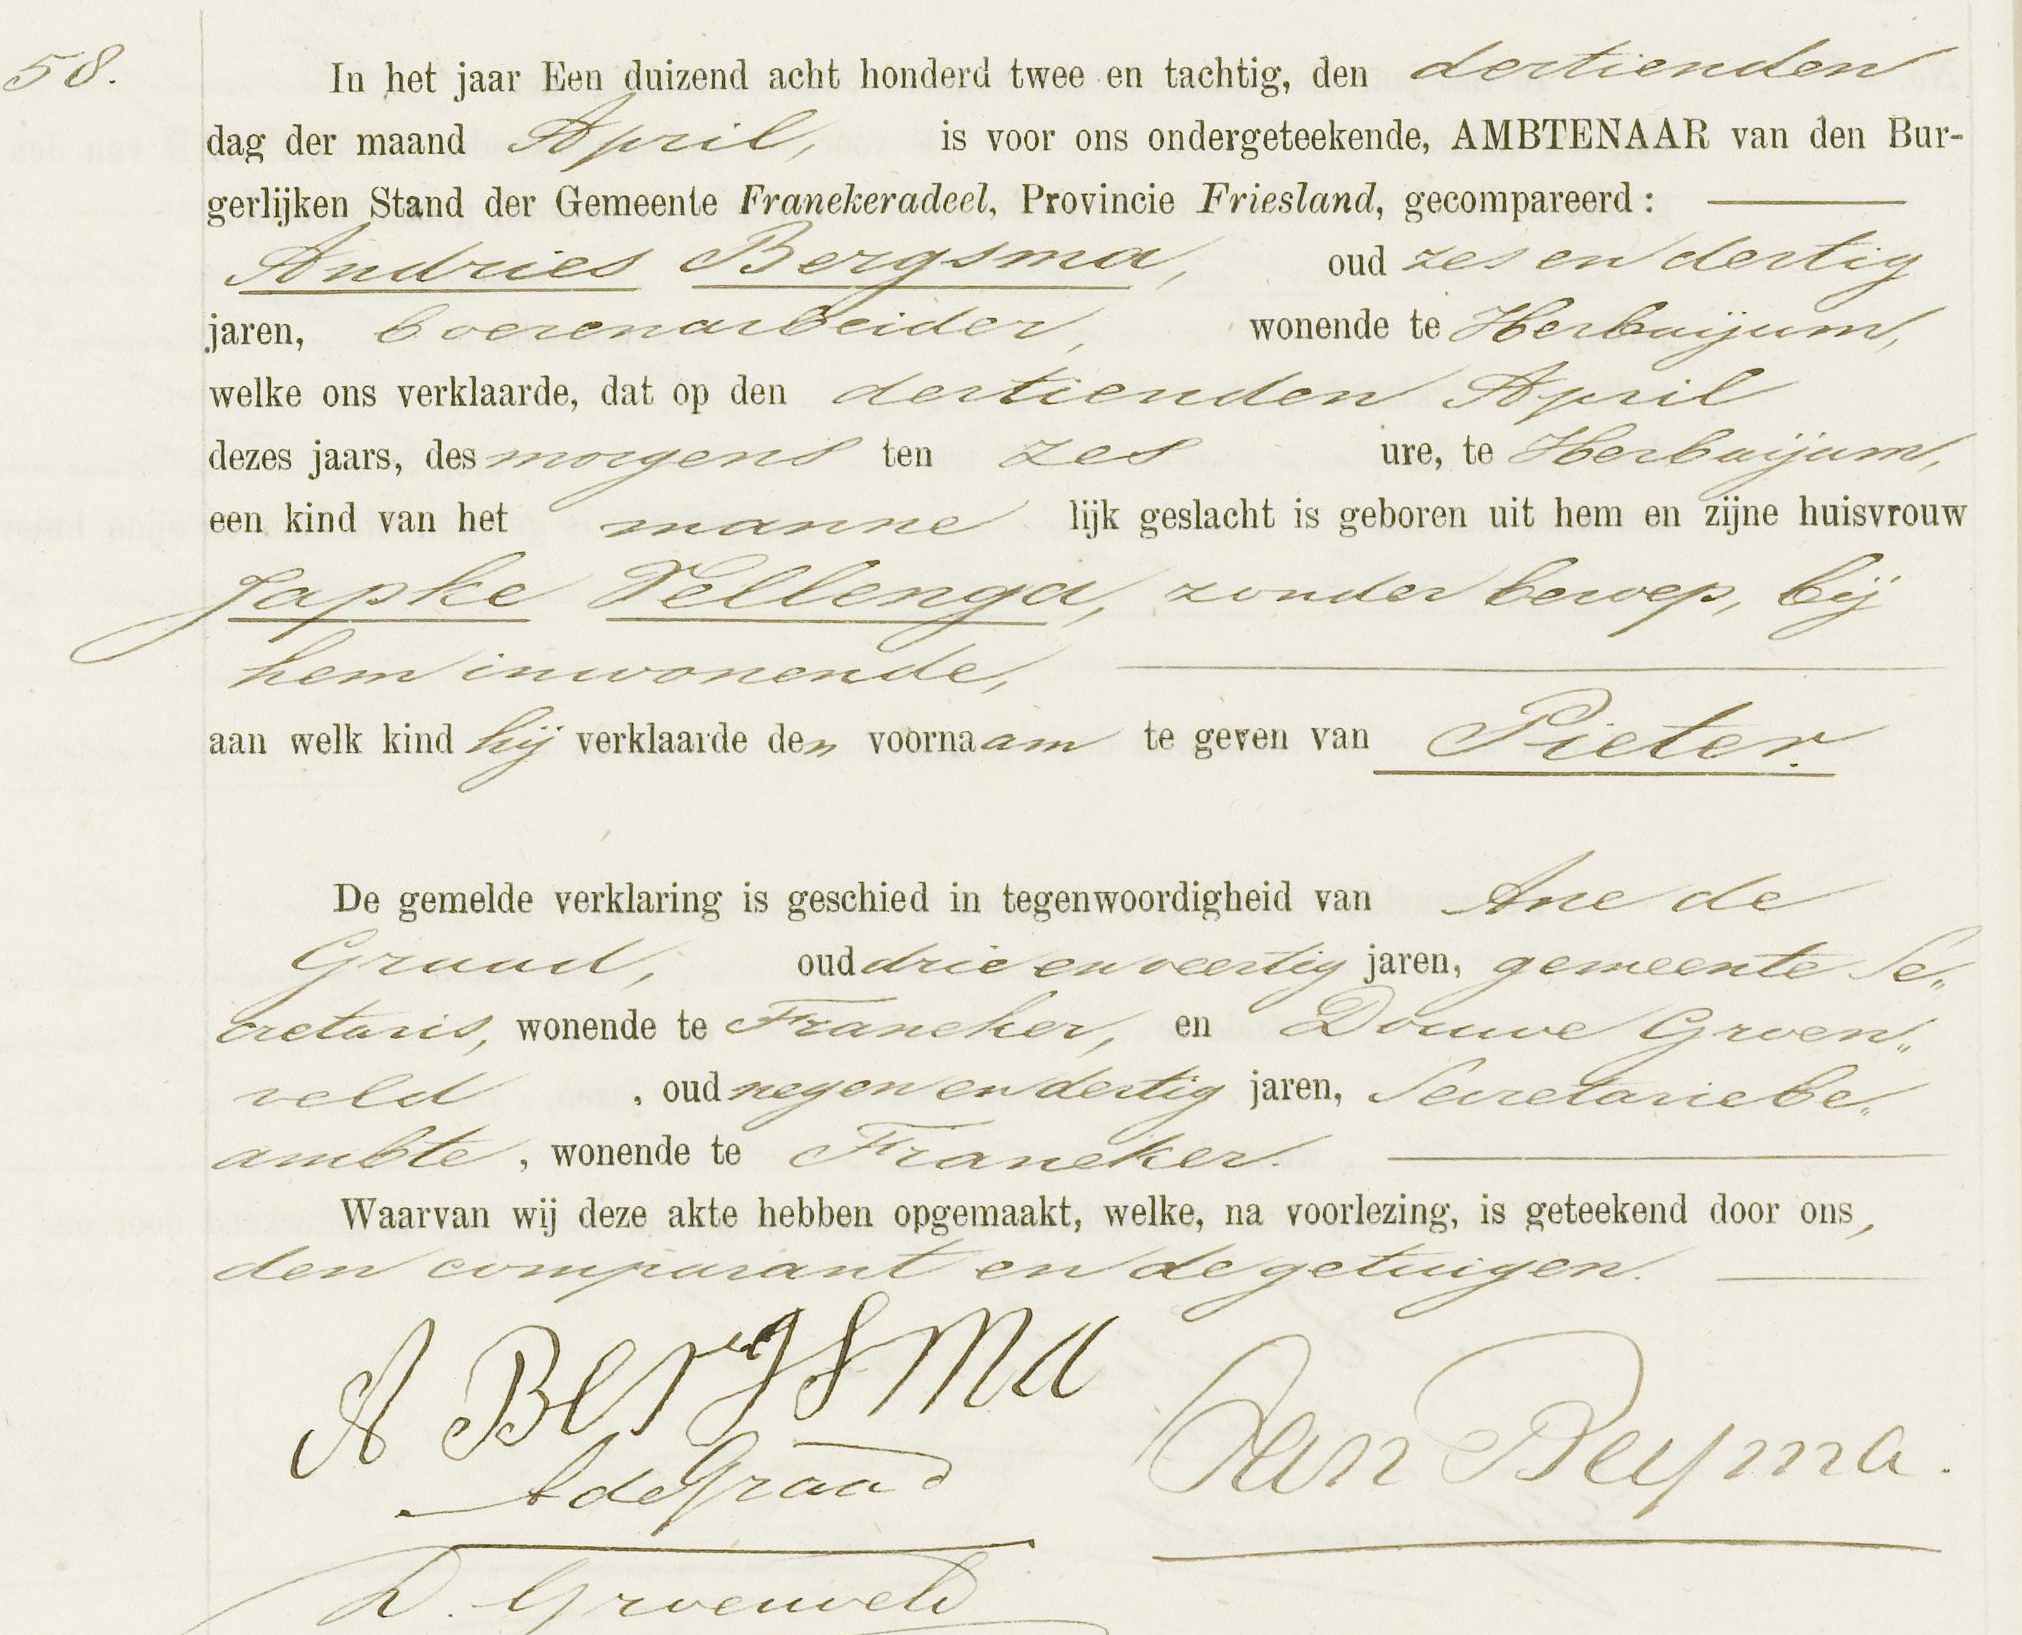 58.
In het jaar Een duizend acht honderd twee en tachtig, den dertienden
dag der maand April, is voor ons ondergeteekende, AMBTENAAR van den Bur-
gerlijken Stand der Gemeente Franekeradeel, Provincie Friesland, gecompareerd :
Andries Bergsma, oud zes en dertig
jaren, boerenarbeider, wonende te Herbaijum,
welke ons verklaarde, dat op den dertienden April
dezes jaars, des morgens ten zes ure, te Herbaijum,
een kind van het manne lijk geslacht is geboren uit hem en zijne huisvrouw
Japke Tellenga, zonder beroep, bij
hem inwonende,
aan welk kind hij verklaarde den voornaam te geven van Pieter.
De gemelde verklaring is geschied in tegenwoordigheid van Ane de
Graad, oud drie en veertig jaren, gemeente Se„
cretaris, wonende te Franeker, en Douwe Groen„
veld , oud negen en dertig jaren, Secretarie be„
ambte , wonende te Franeker.
Waarvan wij deze akte hebben opgemaakt, welke, na voorlezing, is geteekend door ons,
den comparant en de getuigen.
A Bergsma
Jan Beyma.
A de Graad
D. Groenveld